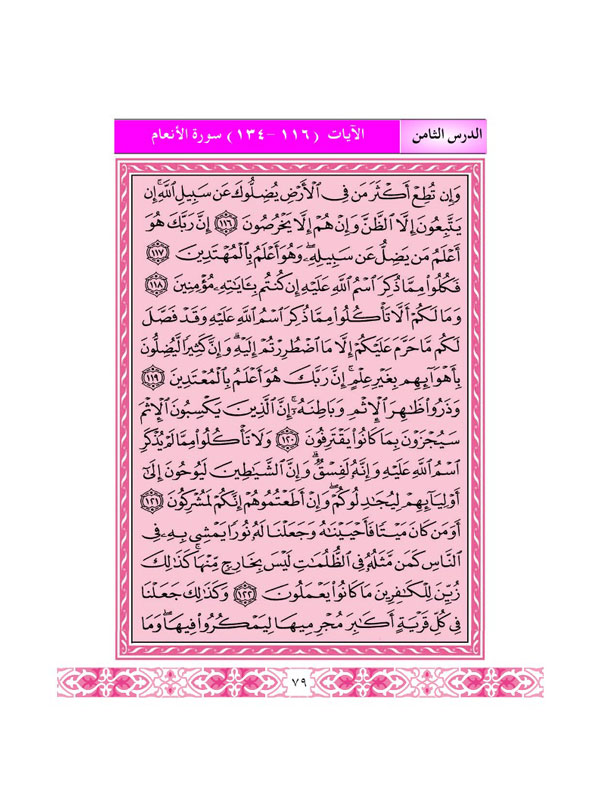 الدرس الثامن
الآيات (١١٦ – ١٣٤) سورة الأنعام
وَإِن تُطِعْ أَكْثَرَ مَن فِي الْأَرْضِ يُضِلُّوكَ عَن سَبِيلِ اللَّهِ ۚ إِن
يَتَّبِعُونَ إِلَّا الظَّنَّ وَإِنْ هُمْ إِلَّا يَخْرُصُونَ ١١٦ إِنَّ رَبَّكَ هُوَ
أَعْلَمُ مَن يَضِلُّ عَن سَبِيلِهِ ۖ وَهُوَ أَعْلَمُ بِالْمُهْتَدِينَ ١١٧
فَكُلُوا مِمَّا ذُكِرَ اسْمُ اللَّهِ عَلَيْهِ إِن كُنتُم بِـَٔايَـٰتِهِ مُؤْمِنِينَ ١١٨
وَمَا لَكُمْ أَلَّا تَأْكُلُوا مِمَّا ذُكِرَ اسْمُ اللَّهِ عَلَيْهِ وَقَدْ فَصَّلَ
لَكُم مَّا حَرَّمَ عَلَيْكُمْ إِلَّا مَا اضْطُرِرْتُمْ إِلَيْهِ ۗ وَإِنَّ كَثِيرًا لَّيُضِلُّونَ
بِأَهْوَائِهِم بِغَيْرِ عِلْمٍ ۗ إِنَّ رَبَّكَ هُوَ أَعْلَمُ بِالْمُعْتَدِينَ ١١٩
وَذَرُوا ظَـٰهِرَ الْإِثْمِ وَبَاطِنَهُ ۚ إِنَّ الَّذِينَ يَكْسِبُونَ الْإِثْمَ
سَيُجْزَوْنَ بِمَا كَانُوا يَقْتَرِفُونَ ١٢٠ وَلَا تَأْكُلُوا مِمَّا لَمْ يُذْكَرِ
اسْمُ اللَّهِ عَلَيْهِ وَإِنَّهُ لَفِسْقٌ ۗ وَإِنَّ الشَّيَـٰطِينَ لَيُوحُونَ إِلَىٰ
أَوْلِيَائِهِمْ لِيُجَـٰدِلُوكُمْ ۖ وَإِنْ أَطَعْتُمُوهُمْ إِنَّكُمْ لَمُشْرِكُونَ ١٢١
أَوَمَن كَانَ مَيْتًا فَأَحْيَيْنَـٰهُ وَجَعَلْنَا لَهُ نُورًا يَمْشِي بِهِ فِي
النَّاسِ كَمَن مَّثَلُهُ فِي الظُّلُمَـٰتِ لَيْسَ بِخَارِجٍ مِّنْهَا ۚ كَذَٰلِكَ
زُيِّنَ لِلْكَـٰفِرِينَ مَا كَانُوا يَعْمَلُونَ ١٢٢ وَكَذَٰلِكَ جَعَلْنَا
فِي كُلِّ قَرْيَةٍ أَكَـٰبِرَ مُجْرِمِيهَا لِيَمْكُرُوا فِيهَا ۖ وَمَا
٧٩